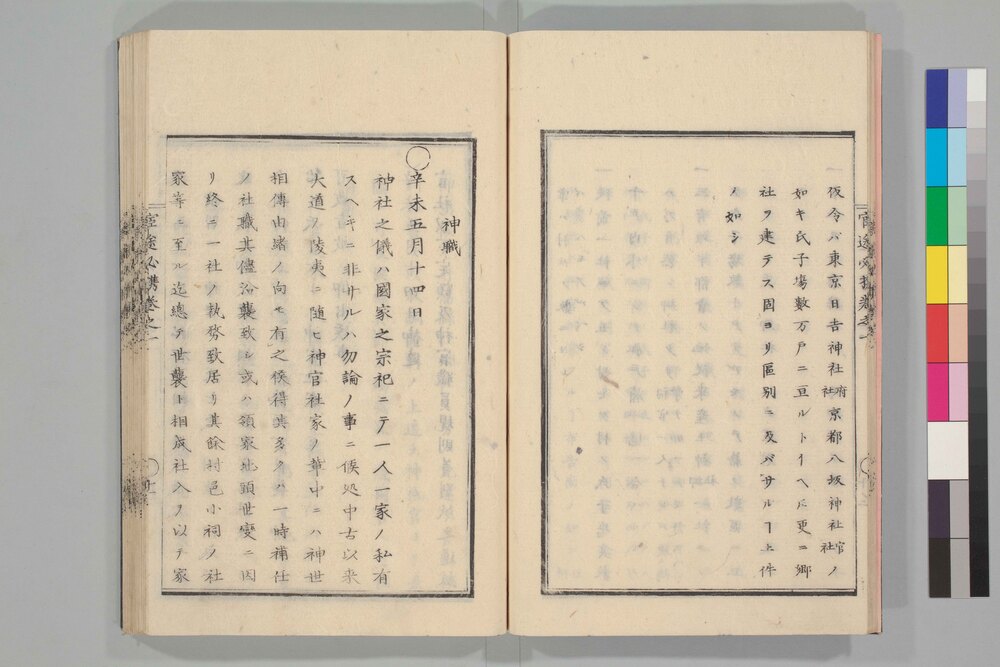 仮令ハ東京日吉神社府社京都八坂神社官社ノ
如キ氏子場數万戸ニ亘ルトイヘ𪜈更ニ郷
社ヲ建テス固ヨリ區別ニ及バサルヿ上件
ノ如シ
官途必携巻之一
神職
〇辛未五月十四日
神社之儀ハ國家之宗祀ニテ一人一家ノ私有
スヘキニ非サルハ勿論ノ事ニ候処中古以来
大道ノ陵夷ニ随ヒ神官社家ノ輩中ニハ神世
相傳由緒ノ向モ有之候得共多クハ一時補任
ノ社職其儘沿襲致シ或ハ領家地頭世變ニ因
リ終ニ一社ノ執務致居リ其餘村邑小祠ノ社
家等ニ至ル迄總テ世襲ト相成社入ヲ以テ家
官途必携巻之一